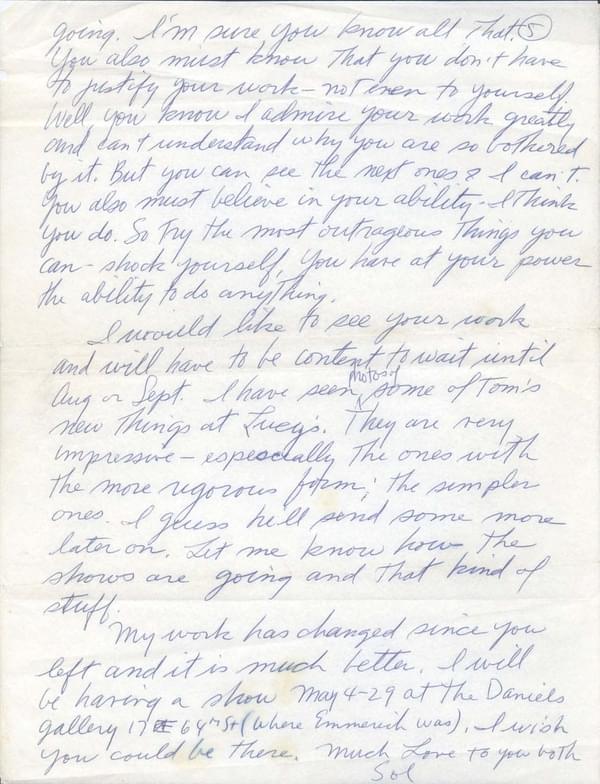 going. I'm sure you know all that. 5
You also must know that you don't have
to justify your work – not even to yourself.
Well you know I admire your work greatly
and can't understand why you are so bothered
by it. But you can see the next ones & I can't.
You also must believe in your ability – I think
you do. So try the most outrageous things you
can – shock yourself. You have at your power
the ability to do anything.
I would like to see your work
and will have to be content to wait until
Aug or Sept. I have seen photos of some of Tom's
new things at Lucy's. They are very
impressive – especially the ones with
the more rigorous form; the simpler
ones. I guess he'll send some more
later on. Let me know how the
shows are going and that kind of
stuff.
My work has changed since you
left and it is much better. I will
be having a show May 4-29 at the Daniels
gallery 17 E 64th St (where Emmerich was). I wish
you could be there. Much Love to you both
Sol